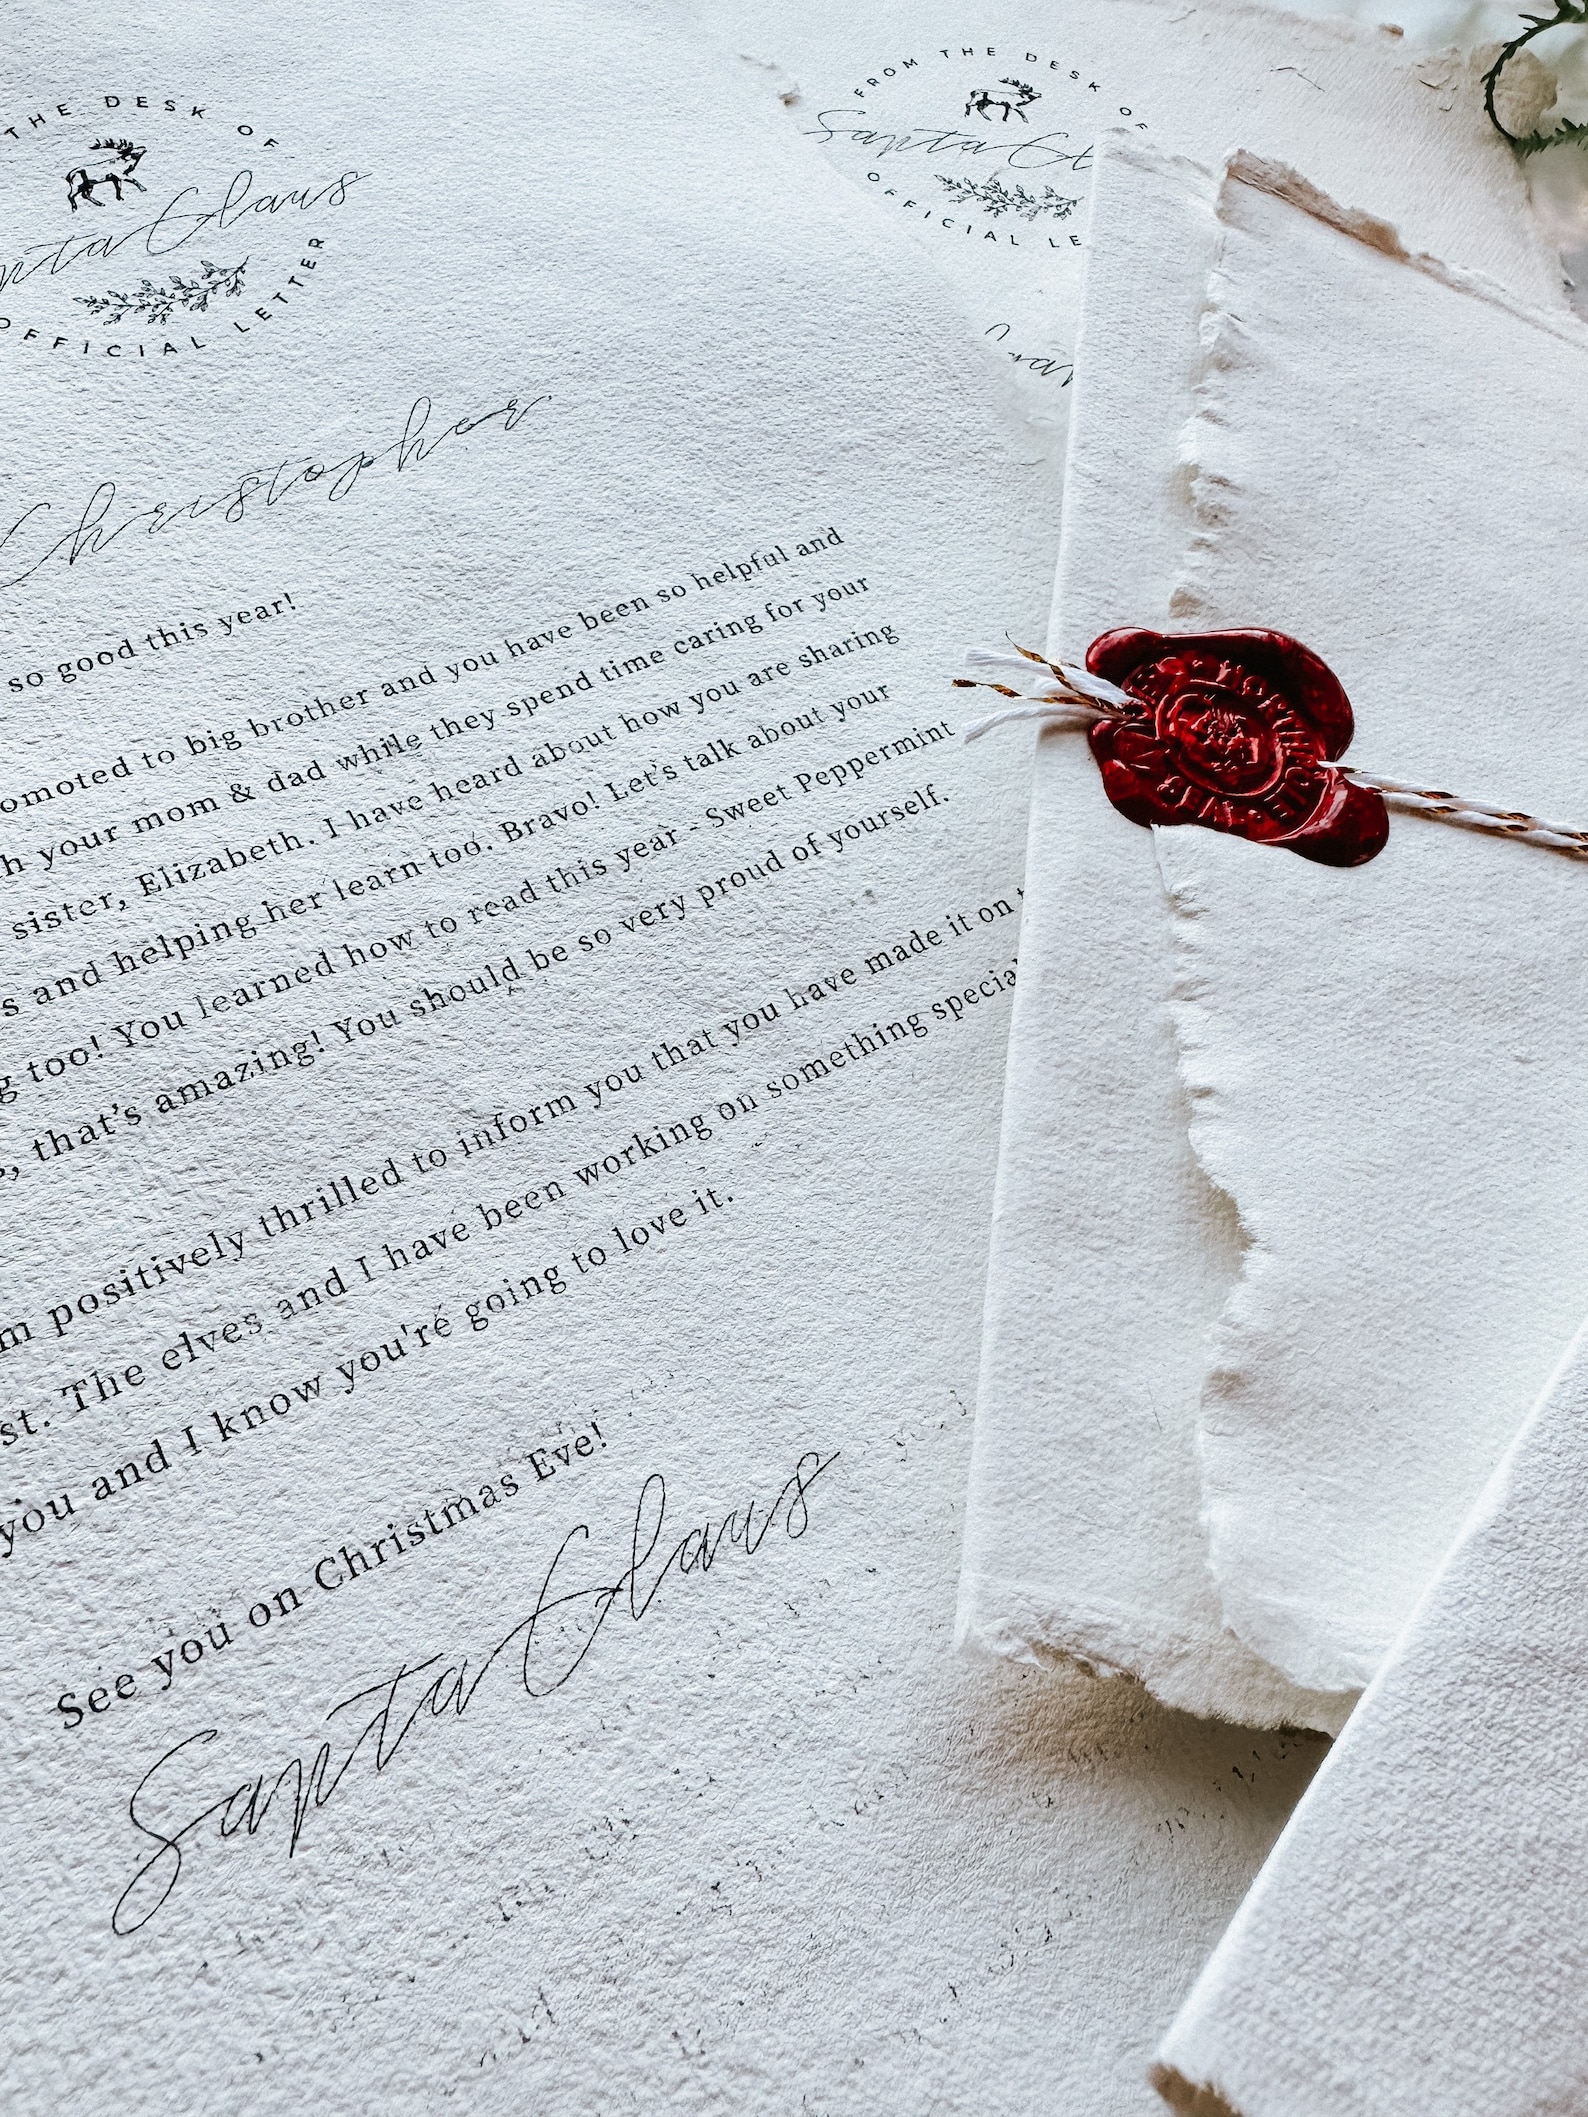 THE DESK OF
Claus
OFFICIAL LETTER
Christopher
so good this year!
to big brother and you have been so helpful and
your mom & dad while they spend time caring for your
sister, Elizabeth. I have heard about how you are sharing
and helping her learn too. Bravo! Let's talk about your
too! You learned how to read this year - Sweet Peppermint
that's amazing! You should be so very proud of yourself.
positively thrilled to inform you that you have made it on
The elves and I have been working on something special
you and I know you're going to love it.
See you on Christmas Eve!
Santa Claus
FROM THE DESK OF
Santa
OFFICIAL